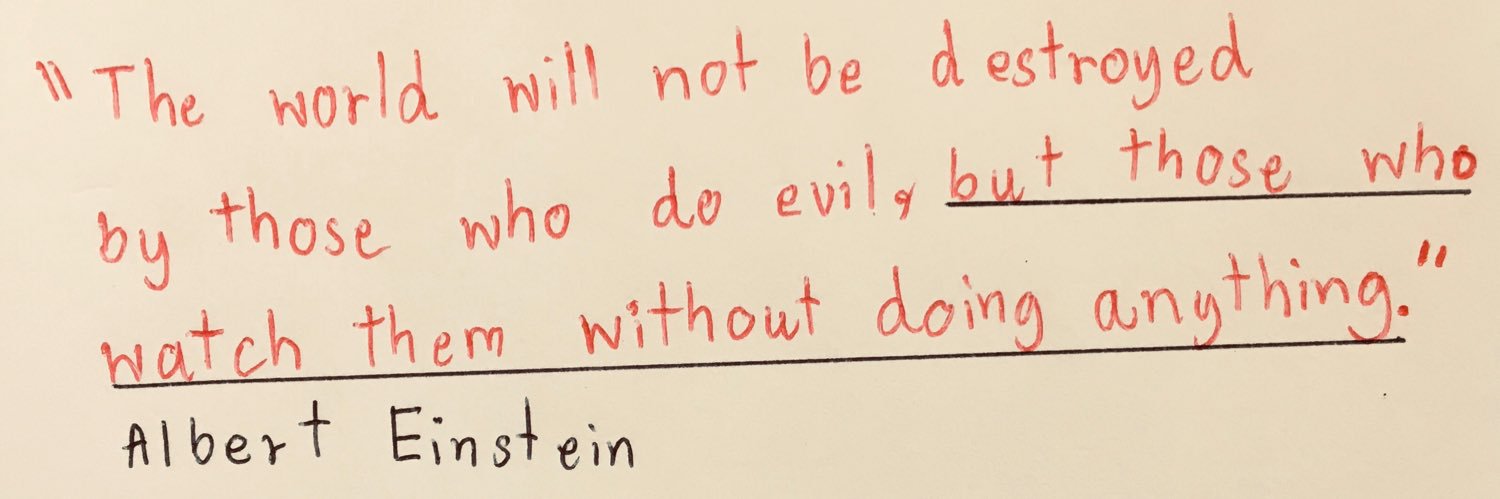 "The world will not be destroyed
by those who do evil, but those who
watch them without doing anything."
Albert Einstein